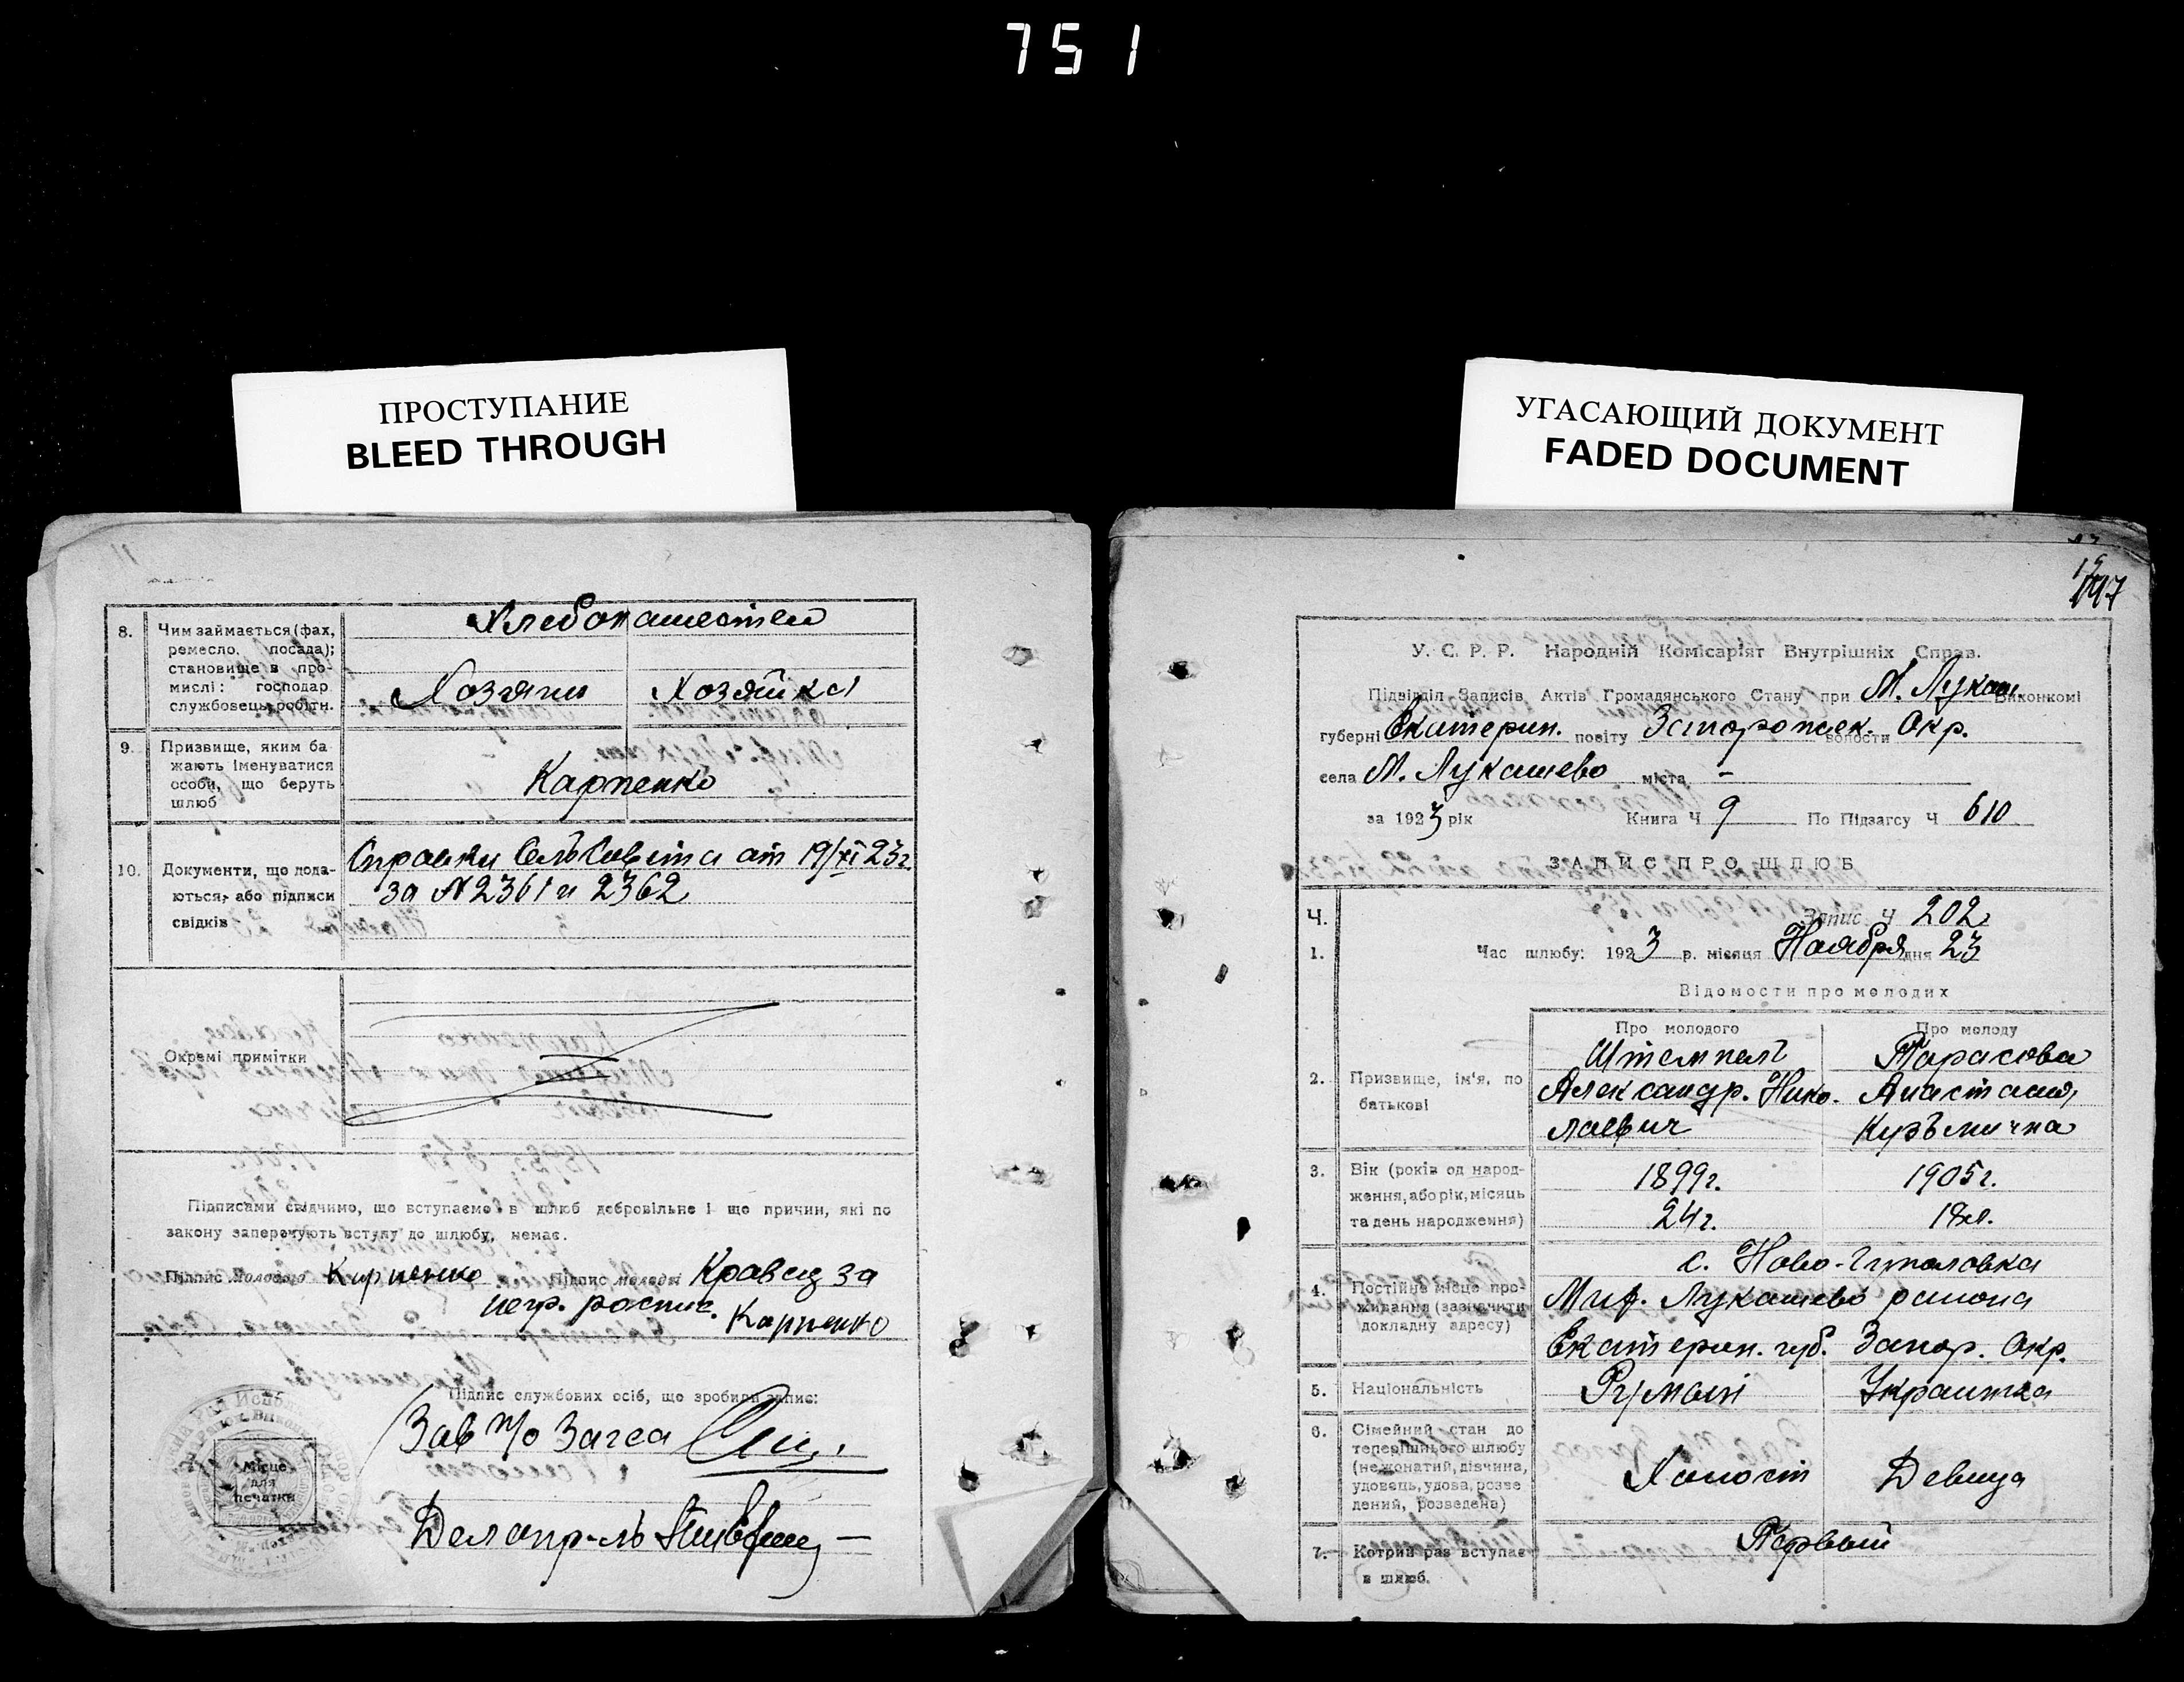 751
ПРОСТУПАНИЕ
BLEED THROUGH
УГАСАЮЩИЙ ДОКУМЕНТ
FADED DOCUMENT
8. Чим займається (фах,
ремесло, посада);
становище в про-
мислі: господар
службовець, робітн.
Хлебопашество
Хозяин Хозяйка
9. Призвище, яким ба
жають іменуватися
особи, що беруть
шлюб
Карпенко
10. Документи, що дода-
ються, або підписи
свідків
Справки СельСовета от 19/XI 23г.
за №2361 и 2362
Окремі примітки
Підписами свідчимо, що вступаємо в шлюб добровільне і що причин, які по
закону заперечують вступу до шлюбу, немає.
Підпис молодого Карпенко Підпис молодої Кравец за
негр. распис. Карпенко
Підпис службових осіб, що зробили запис:
Зав п/о Загса
Місце
для
печатки
Делопр-ль
197
У. С. Р. Р. Народній Комісаріят Внутрішніх Справ.
Підвідділ Записів Актів Громадянського Стану при М. Лукаш. Виконкомі
губерні Екатерин. повіту Запорожск. волости Окр.
села М. Лукашево міста —
за 1923 рік Книга Ч 9 По Підзагсу Ч 610
ЗАПИС ПРО ШЛЮБ
Ч. Запис Ч 202
1. Час шлюбу: 1923 р. місяця Ноября дня 23
Відомости про молодих
Про молодого Про молоду
2. Призвище, ім'я, по
батькові
Штемпель Тарасова
Александр. Нико- Анастасия
лаевич Кузьмична
3. Вік (років од народ-
ження, або рік, місяць
та день народження)
1899г. 1905г.
24г. 18л.
4. Постійне місце про-
живання (зазначити
докладну адресу)
с. Ново-Гуполовка
Мих. Лукашево района
Екатерин. губ. Запор. Окр.
5. Національність Румын Украинка
6. Сімейний стан до
теперішнього шлюбу
(нежонатий, дівчина,
удовець, удова, розве
дений, розведена)
Холост Девица
7. Котрий раз вступає
в шлюб.
Первый